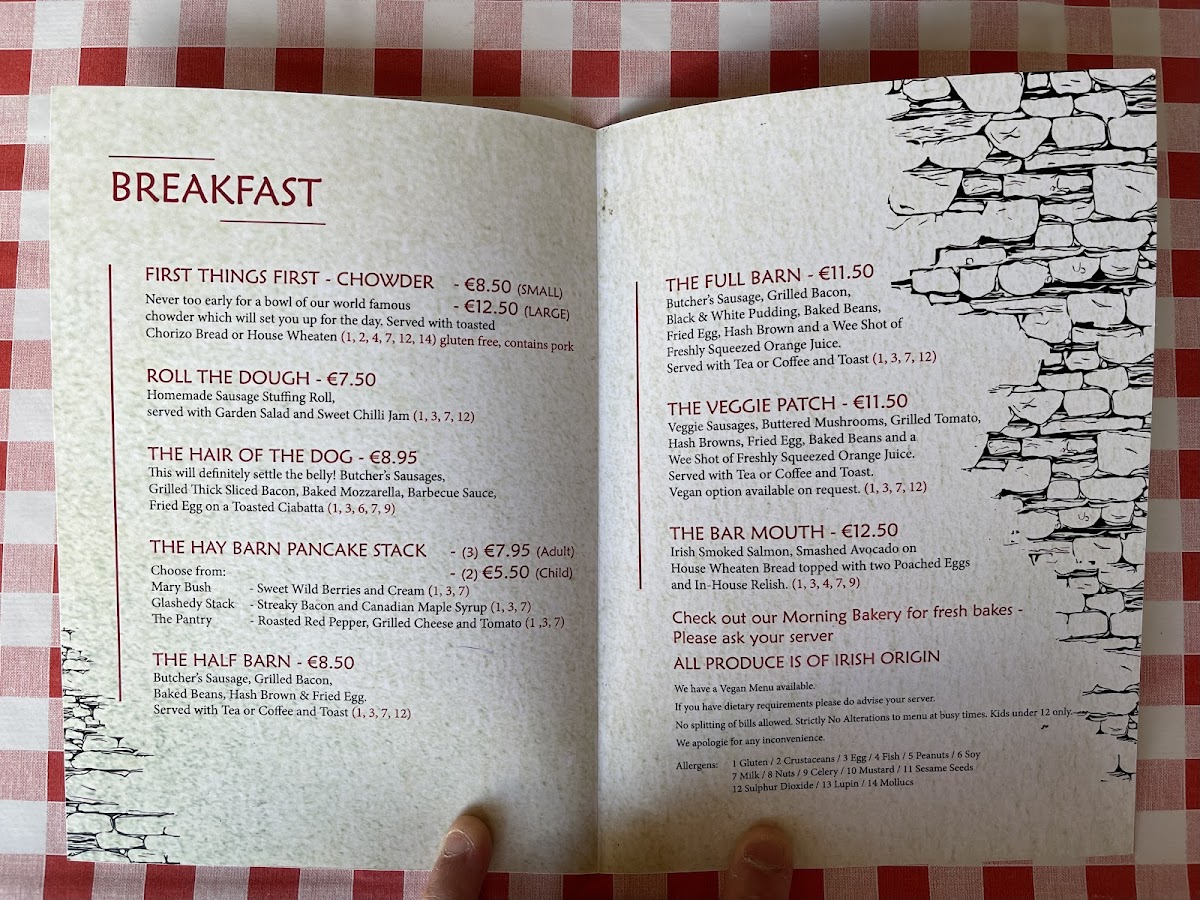 BREAKFAST
FIRST THINGS FIRST - CHOWDER - €8.50 (SMALL)
- €12.50 (LARGE)
Never too early for a bowl of our world famous
chowder which will set you up for the day. Served with toasted
Chorizo Bread or House Wheaten (1, 2, 4, 7, 12, 14) gluten free, contains pork
ROLL THE DOUGH - €7.50
Homemade Sausage Stuffing Roll,
served with Garden Salad and Sweet Chilli Jam (1, 3, 7, 12)
THE HAIR OF THE DOG - €8.95
This will definitely settle the belly! Butcher's Sausages,
Grilled Thick Sliced Bacon, Baked Mozzarella, Barbecue Sauce,
Fried Egg on a Toasted Ciabatta (1, 3, 6, 7, 9)
THE HAY BARN PANCAKE STACK - (3) €7.95 (Adult)
- (2) €5.50 (Child)
Choose from:
Mary Bush - Sweet Wild Berries and Cream (1, 3, 7)
Glashedy Stack - Streaky Bacon and Canadian Maple Syrup (1, 3, 7)
The Pantry - Roasted Red Pepper, Grilled Cheese and Tomato (1 ,3, 7)
THE HALF BARN - €8.50
Butcher's Sausage, Grilled Bacon,
Baked Beans, Hash Brown & Fried Egg.
Served with Tea or Coffee and Toast (1, 3, 7, 12)
THE FULL BARN - €11.50
Butcher's Sausage, Grilled Bacon,
Black & White Pudding, Baked Beans,
Fried Egg, Hash Brown and a Wee Shot of
Freshly Squeezed Orange Juice.
Served with Tea or Coffee and Toast (1, 3, 7, 12)
THE VEGGIE PATCH - €11.50
Veggie Sausages, Buttered Mushrooms, Grilled Tomato,
Hash Browns, Fried Egg, Baked Beans and a
Wee Shot of Freshly Squeezed Orange Juice.
Served with Tea or Coffee and Toast.
Vegan option available on request. (1, 3, 7, 12)
THE BAR MOUTH - €12.50
Irish Smoked Salmon, Smashed Avocado on
House Wheaten Bread topped with two Poached Eggs
and In-House Relish. (1, 3, 4, 7, 9)
Check out our Morning Bakery for fresh bakes -
Please ask your server
ALL PRODUCE IS OF IRISH ORIGIN
We have a Vegan Menu available.
If you have dietary requirements please do advise your server.
No splitting of bills allowed. Strictly No Alterations to menu at busy times. Kids under 12 only.
We apologie for any inconvenience.
Allergens: 1 Gluten / 2 Crustaceans / 3 Egg / 4 Fish / 5 Peanuts / 6 Soy
7 Milk / 8 Nuts / 9 Celery / 10 Mustard / 11 Sesame Seeds
12 Sulphur Dioxide / 13 Lupin / 14 Mollucs